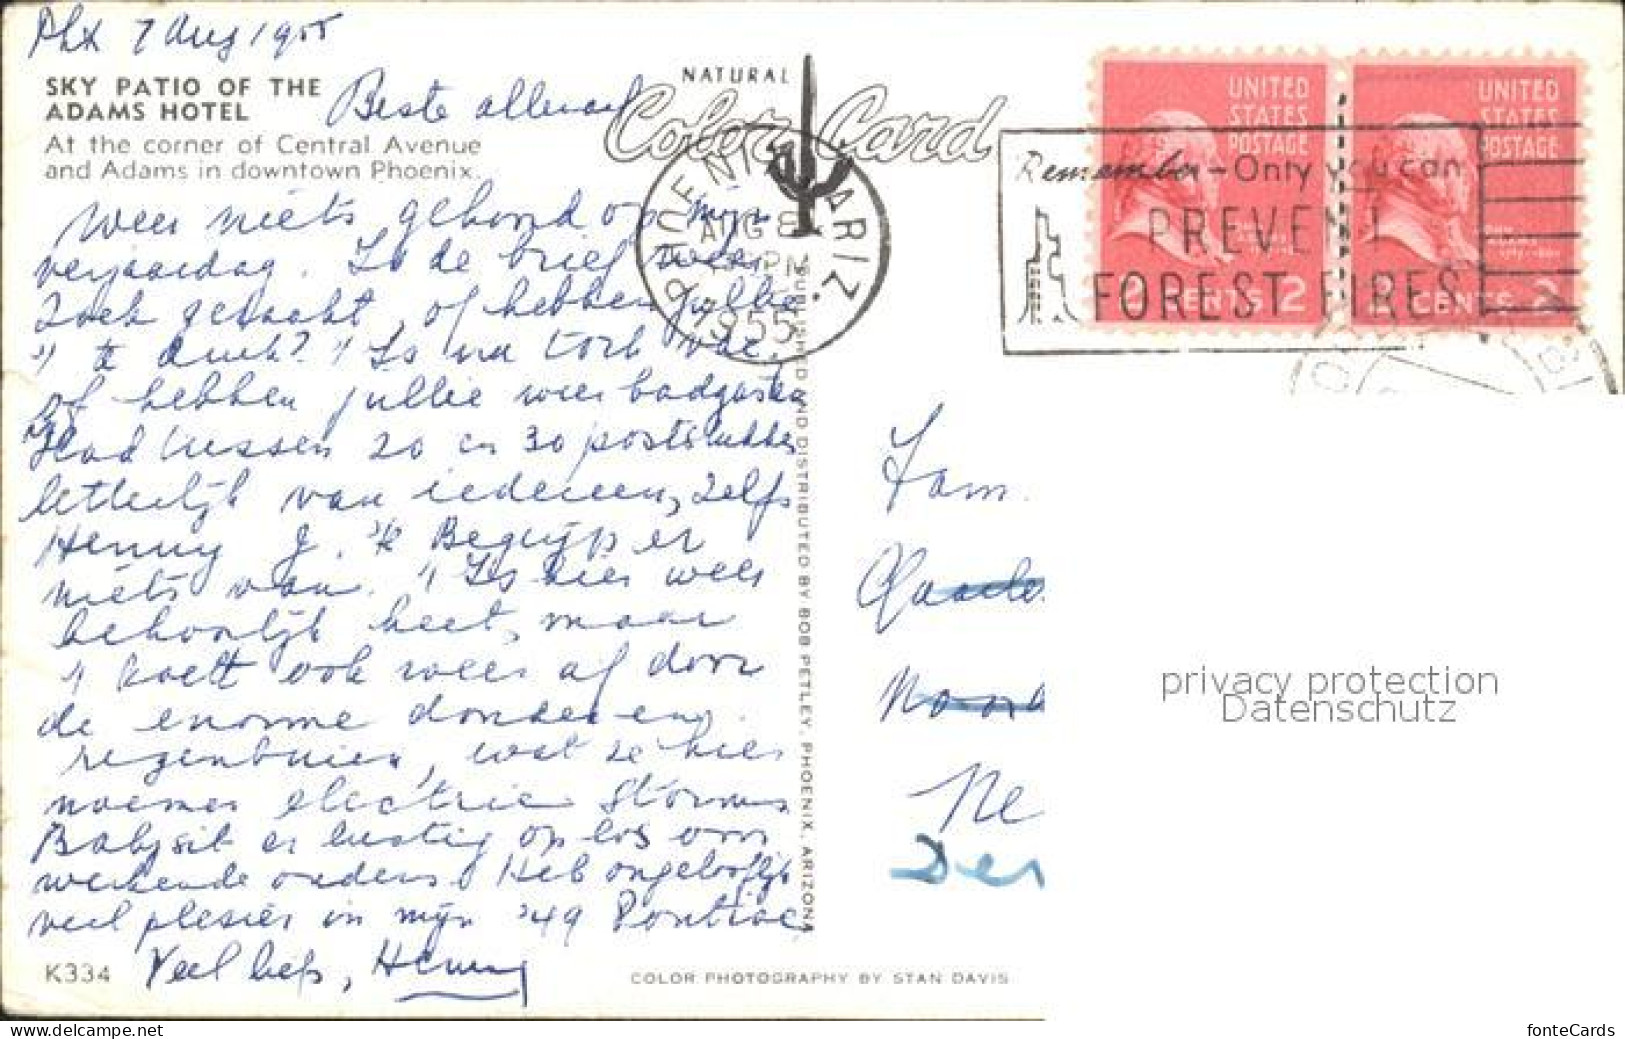 Phx 7 Aug 1955
SKY PATIO OF THE
ADAMS HOTEL
At the corner of Central Avenue
and Adams in downtown Phoenix.
Beste allemaal
NATURAL
Color Card
PHOENIX ARIZ.
AUG 8
PM
1955
Remember - Only you can
PREVENT
FOREST FIRES
UNITED
STATES
POSTAGE
CENTS 2
UNITED
STATES
POSTAGE
CENTS 2
Weer niets gehoord op mijn
verjaardag. Is de brief weer
zoek geraakt, of hebben jullie
't te druk? 't Is me toch wat,
of hebben jullie weer badgasten
Had tussen 20 en 30 poststukken
letterlijk van iedereen, zelfs
Henny J. 'k Begrijp er
niets van. 't Is hier weer
behoorlijk heet, maar
't koelt ook weer af door
de enorme donder en
regenbuien, wat ze hier
noemen electric storms
Babysit er lustig op los voor
werkende ouders. Heb ongelooflijk
veel plezier in mijn '49 Pontiac
Veel liefs, Henny
PUBLISHED AND DISTRIBUTED BY BOB PETLEY, PHOENIX, ARIZONA
Fam.
Ne
Den
privacy protection
Datenschutz
K334
COLOR PHOTOGRAPHY BY STAN DAVIS
www.delcampe.net
fonteCards